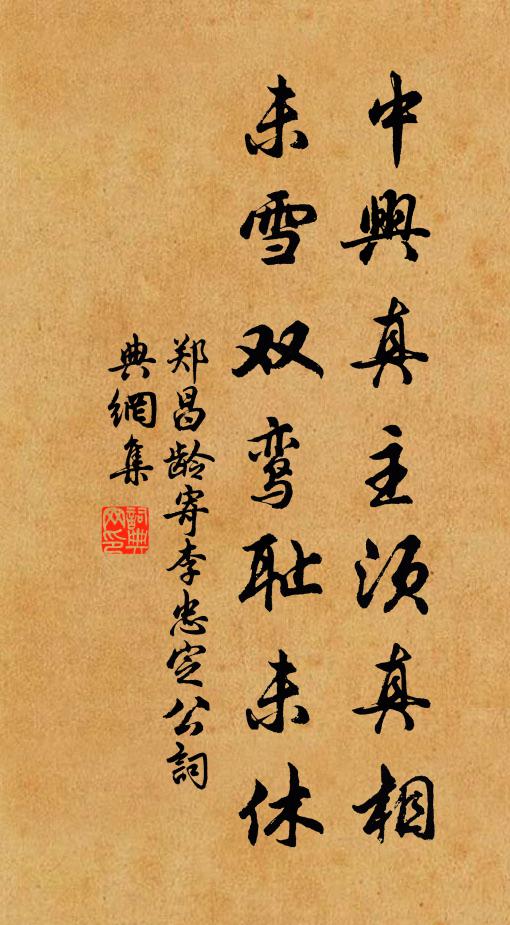 中興真主須真相
未雪双鸾耻未休
郑昌龄寄李忠定公詞
典網集
詞典網印